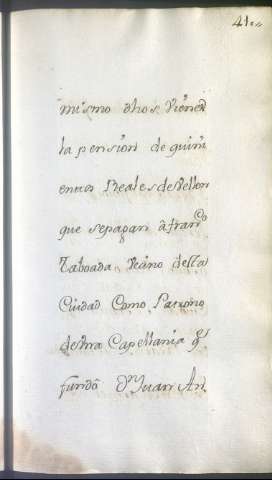 41
mismo dhos Vienes
la pension de quini
entos Reales de Vellon
que se pagan â franco
Taboada Vecino desta
Ciudad Como Patrono
de Vna Capellania q̃
fundô Dn Juan An